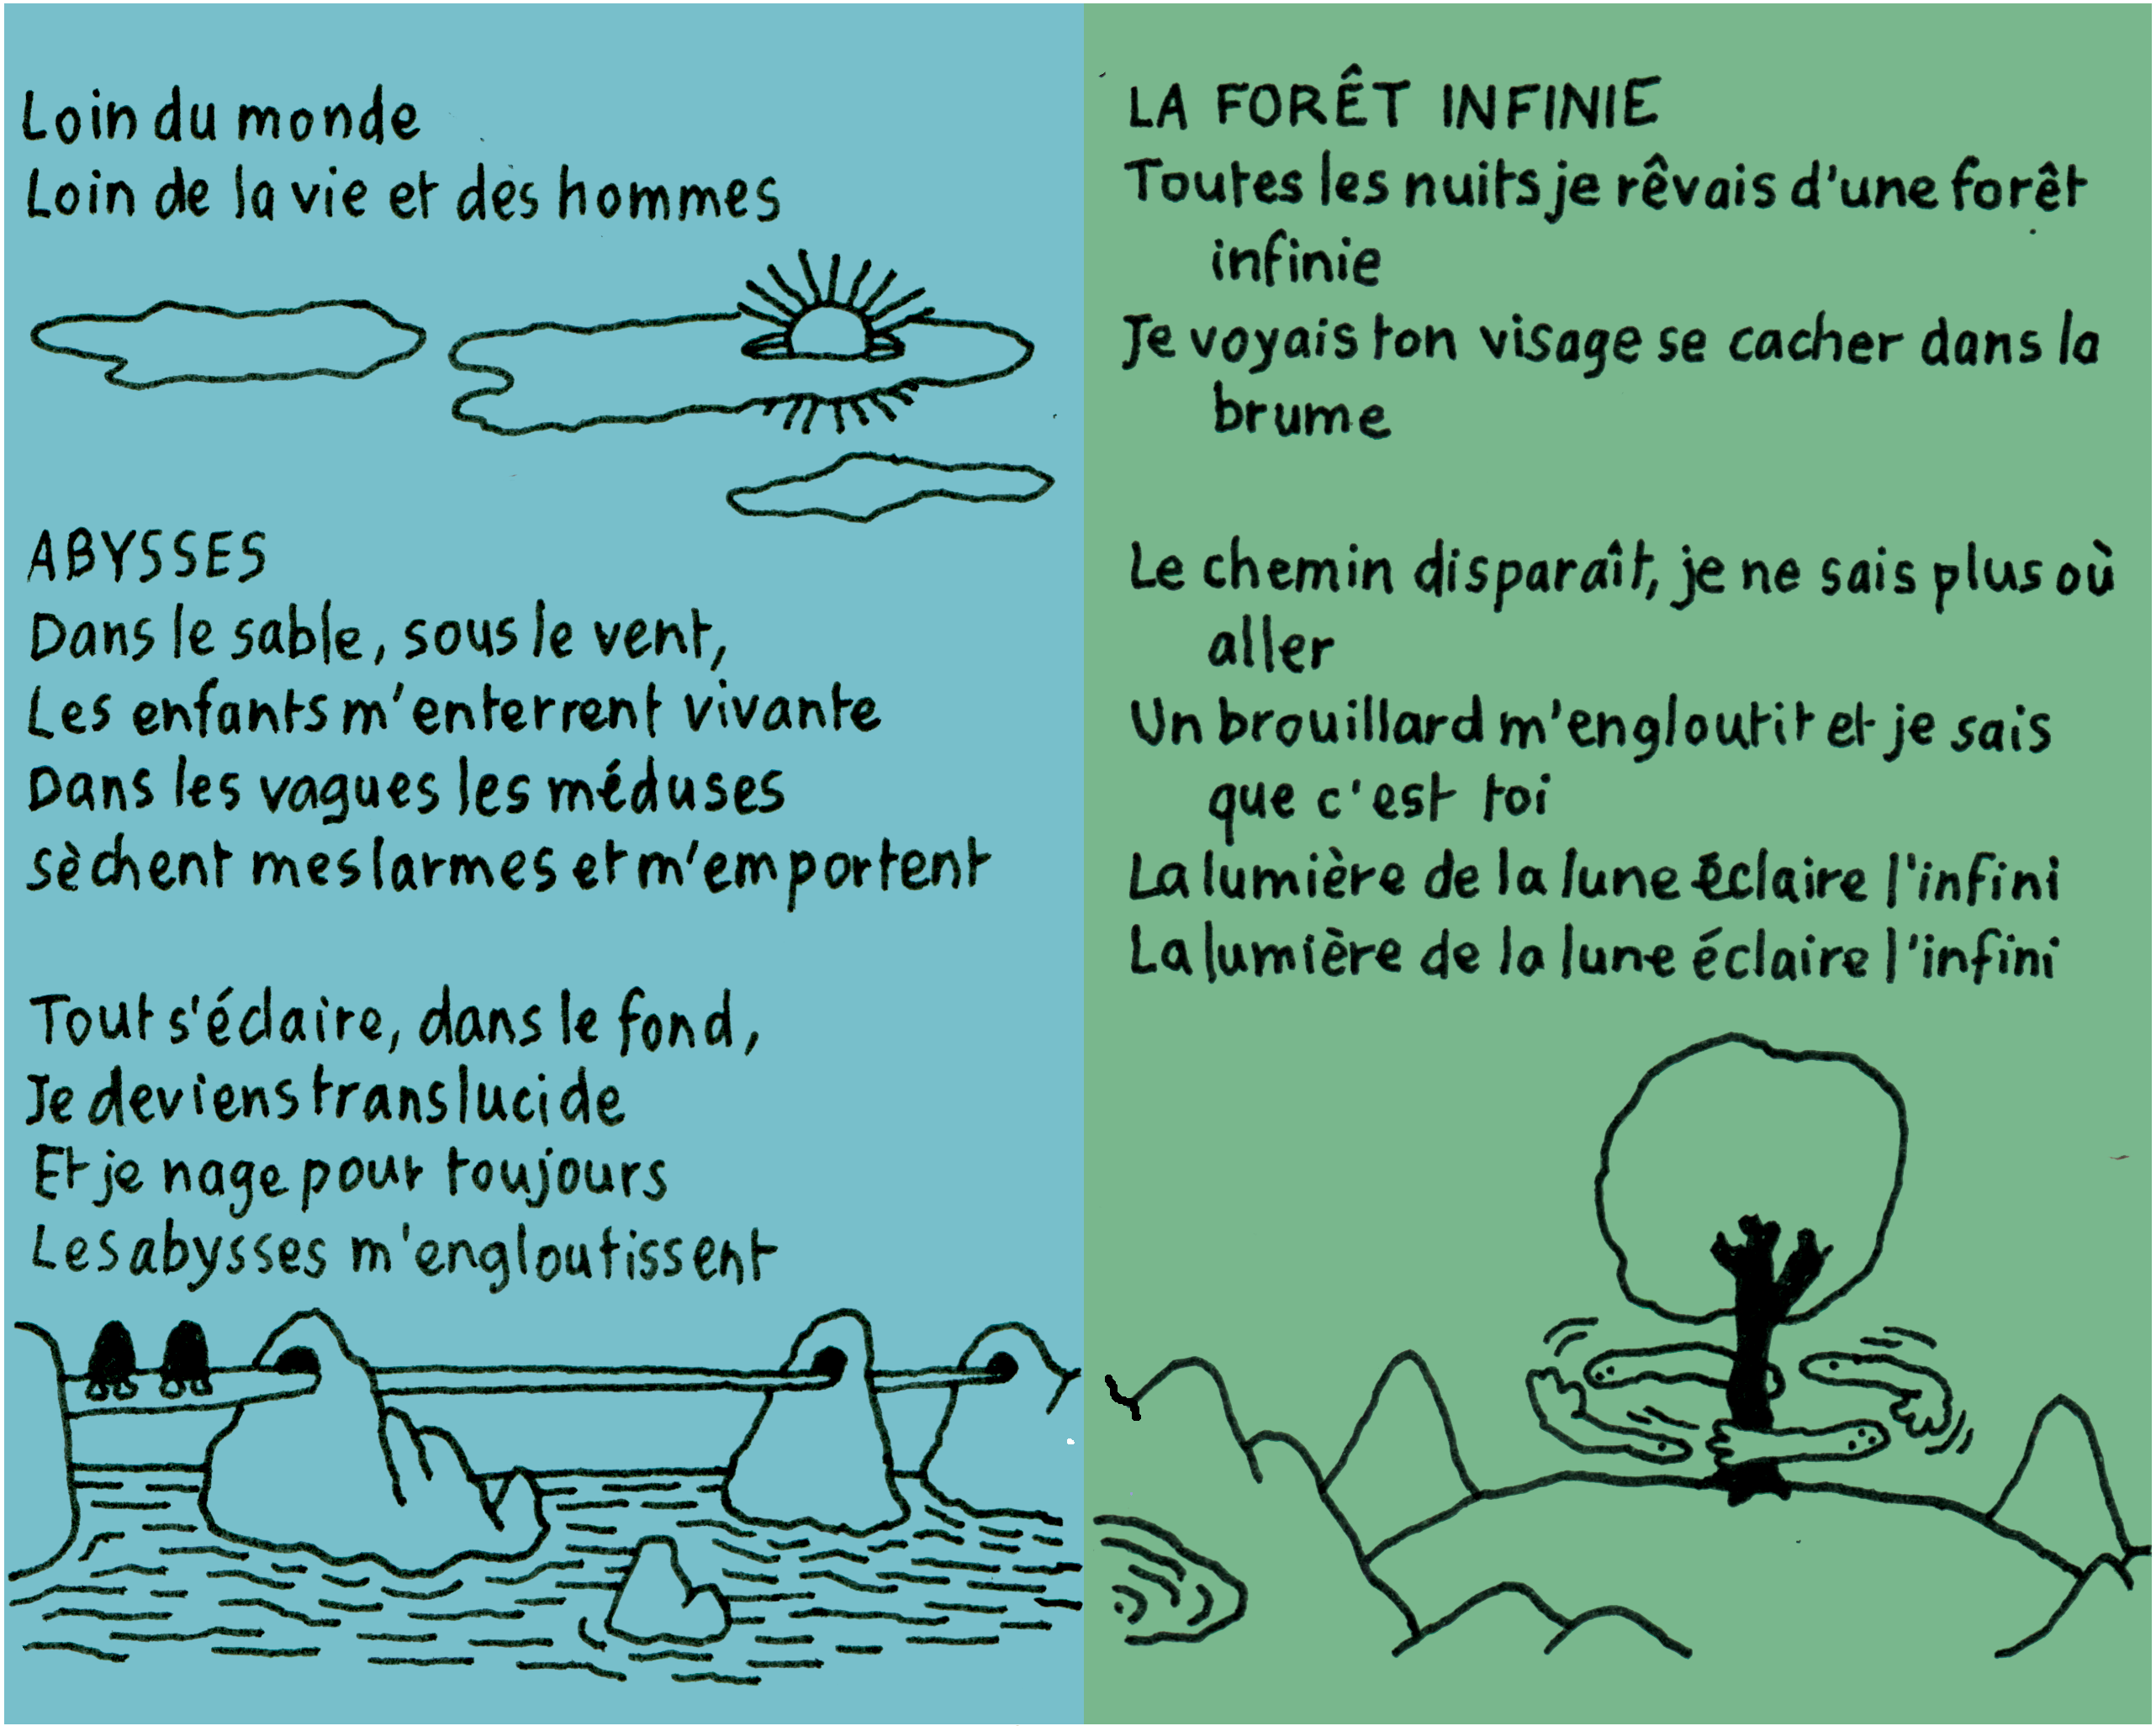 Loin du monde
Loin de la vie et des hommes
ABYSSES
Dans le sable, sous le vent,
Les enfants m'enterrent vivante
Dans les vagues les méduses
sèchent mes larmes et m'emportent
Tout s'éclaire, dans le fond,
Je deviens translucide
Et je nage pour toujours
Les abysses m'engloutissent
LA FORÊT INFINIE
Toutes les nuits je rêvais d'une forêt
infinie
Je voyais ton visage se cacher dans la
brume
Le chemin disparaît, je ne sais plus où
aller
Un brouillard m'engloutit et je sais
que c'est toi
La lumière de la lune éclaire l'infini
La lumière de la lune éclaire l'infini